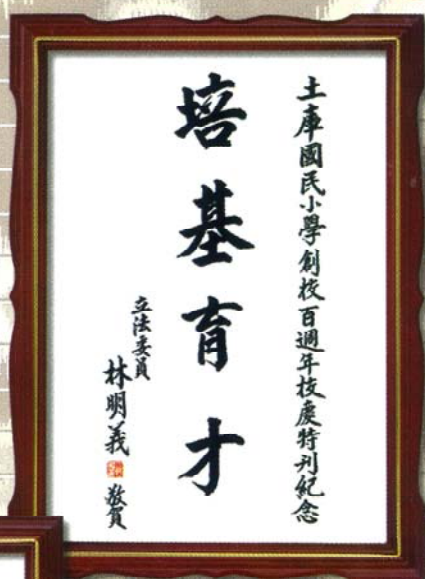 土庫國民小學創校百週年校慶特刊紀念
培基育才
立法委員
林明義 敬賀